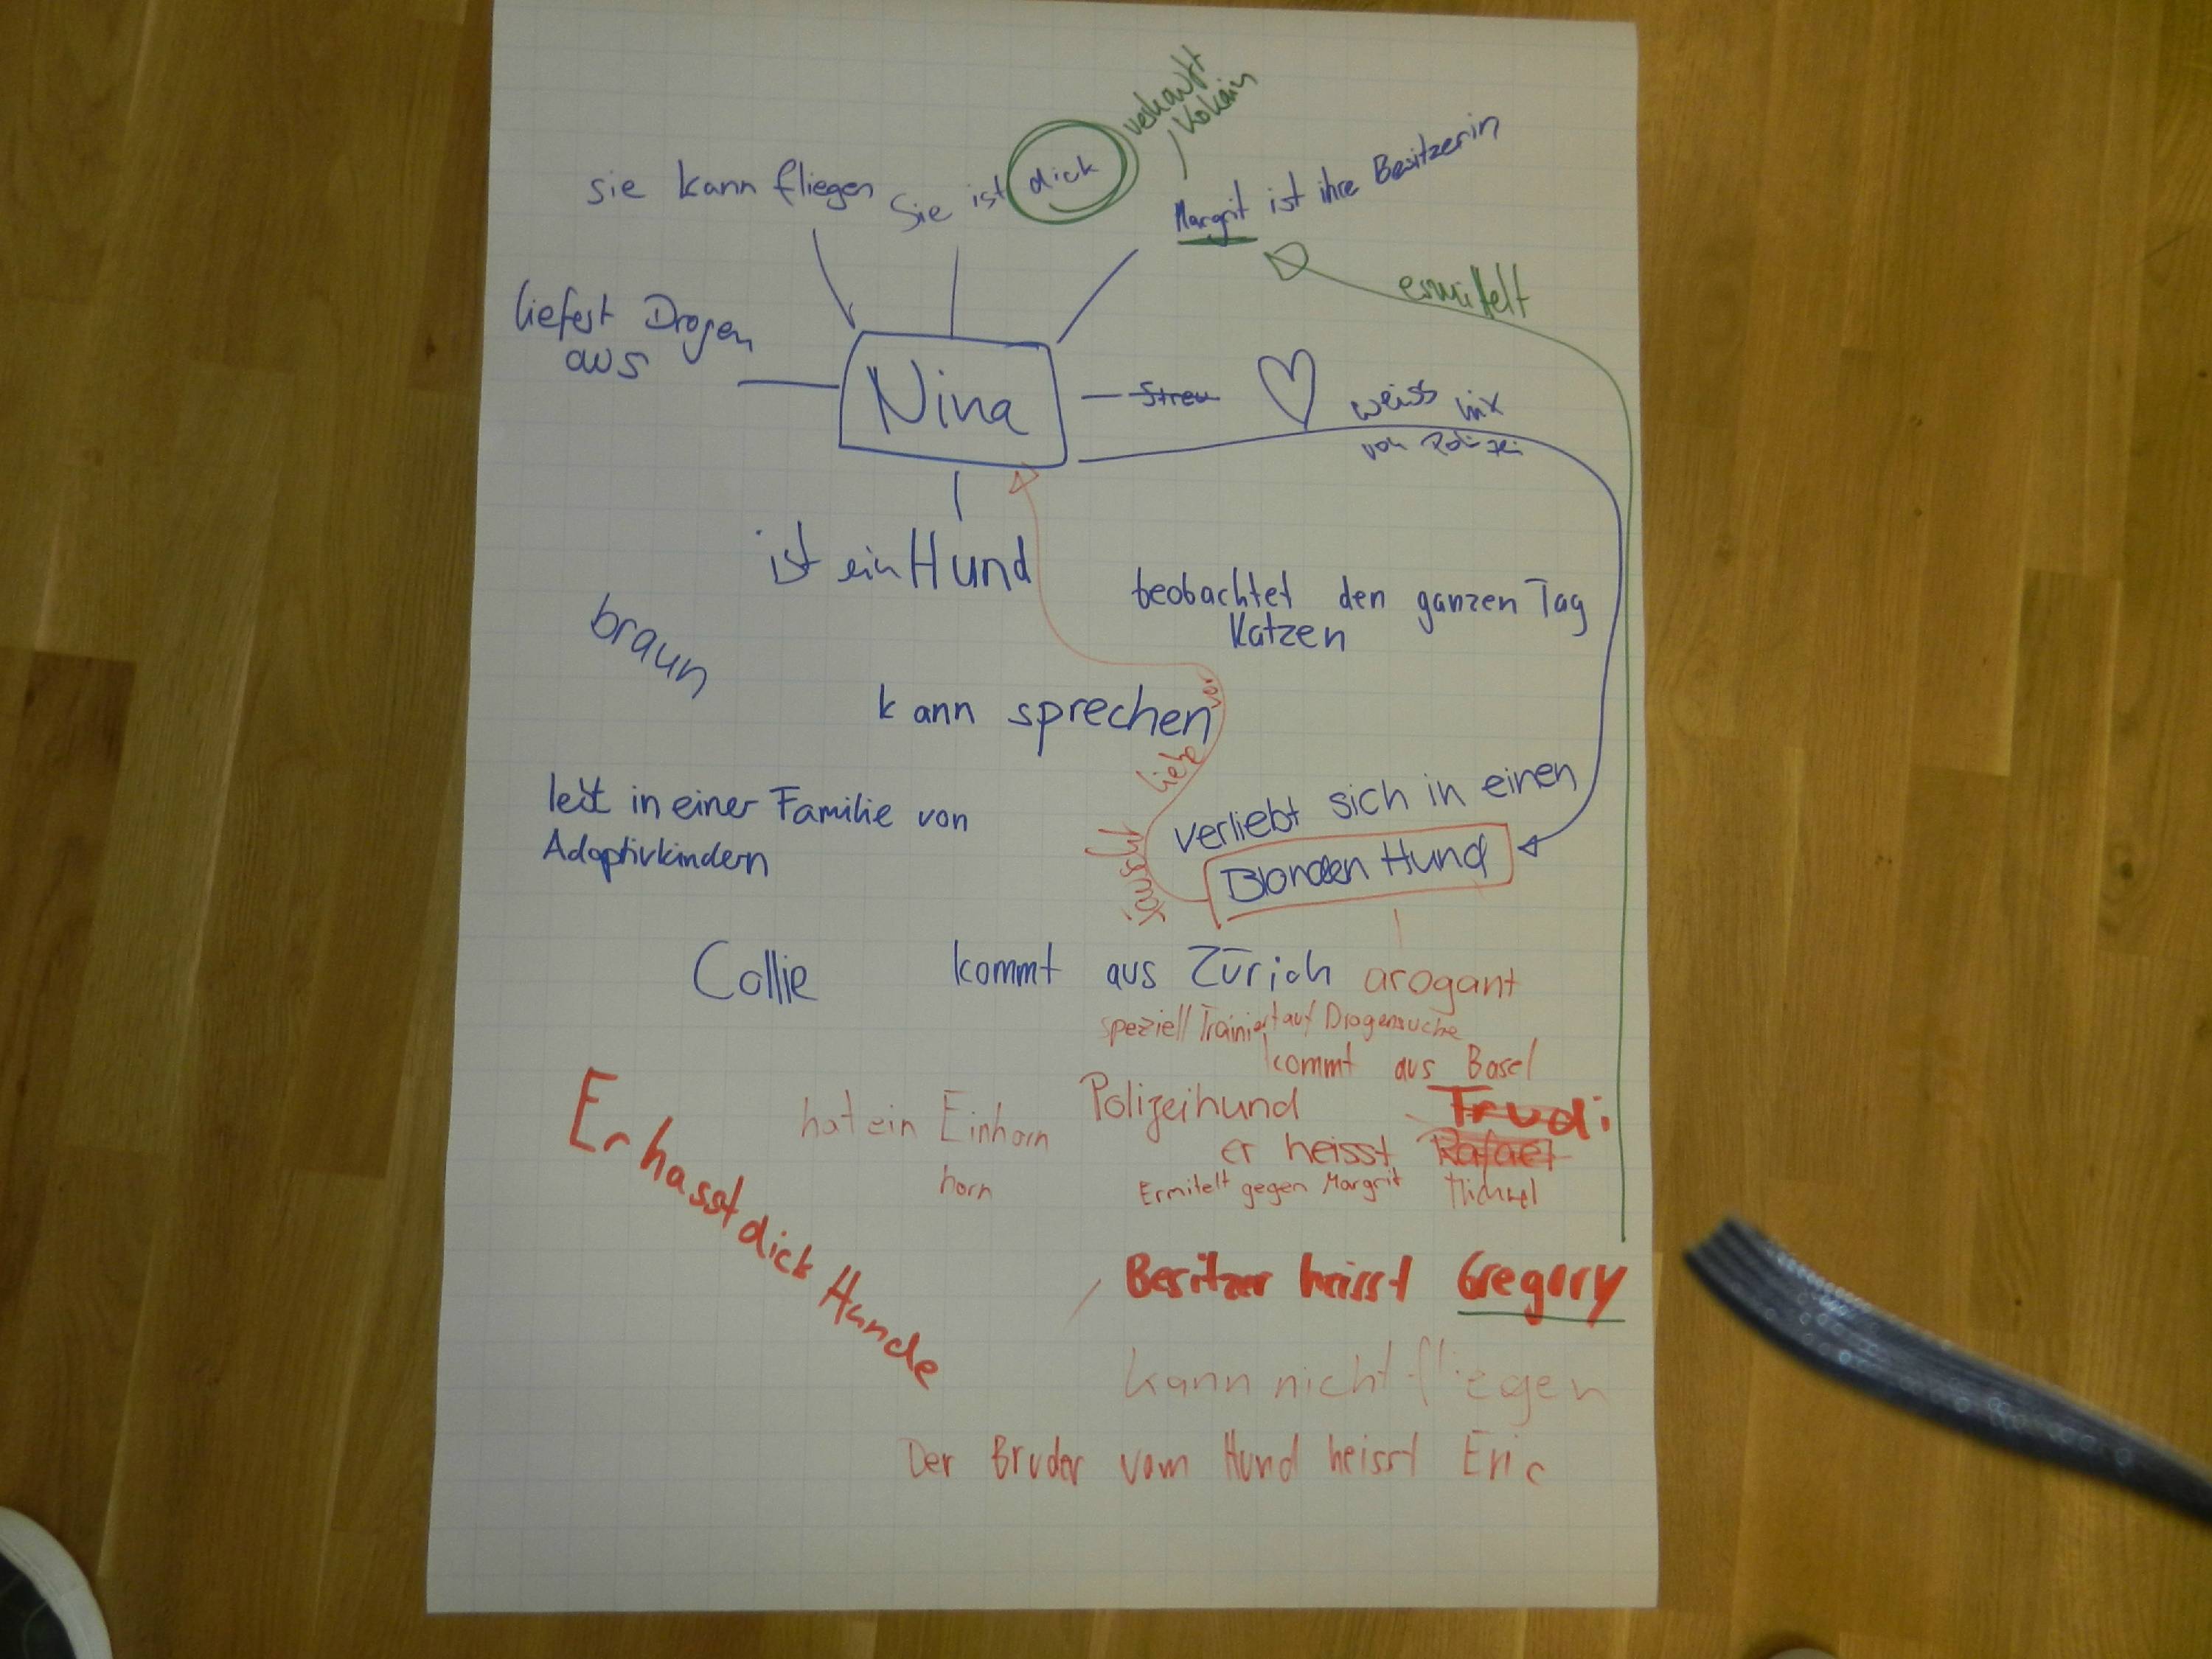 verkauft
Kokain
sie kann fliegen
Sie ist dick
Margrit ist ihre Besitzerin
ermittelt
liefert Drogen
aus
Nina
Streu
weiss nix
von Polizei
ist ein Hund
beobachtet den ganzen Tag
Katzen
braun
kann sprechen
liebe
vor
verliebt sich in einen
Blonden Hund
lebt in einer Familie von
Adoptivkindern
Collie
kommt aus Zürich
arogant
speziell Trainiert auf Drogensuche
kommt aus Basel
Polizeihund
Trudi
hat ein Einhorn
horn
er heisst Rafael
Michael
Ermitelt gegen Margrit
Er hasst dick Hunde
Besitzer heisst Gregory
kann nicht fliegen
Der Bruder vom Hund heisst Eric